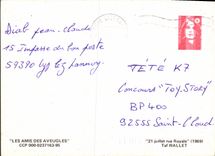 Diab jean-claude
15 Impasse du bon poste
59390 Lys lez Lannoy
TÉTÉ K7
Concours "TOY STORY"
BP 400
92555 Saint-Cloud
"LES AMIS DES AVEUGLES"
CCP 000-0237163-95
"21 juillet rue Royale" (1989)
Taf WALLET